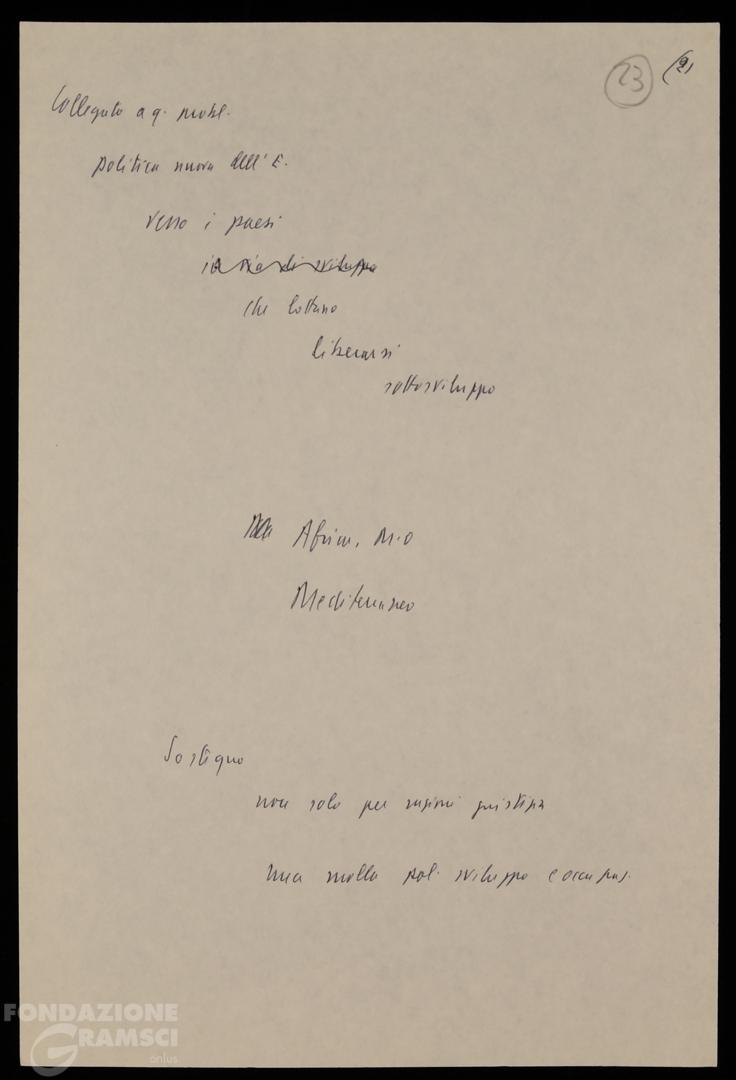 23 (21
Collegato a q. probl.
politica nuova dell'E.
verso i paesi
in via di sviluppo
che lottano
liberarsi
sottosviluppo
Africa, M.O
Mediterraneo
Sostegno
non solo per ragioni giustizia
una molla pol. sviluppo e occupaz.
FONDAZIONE
GRAMSCI
onlus